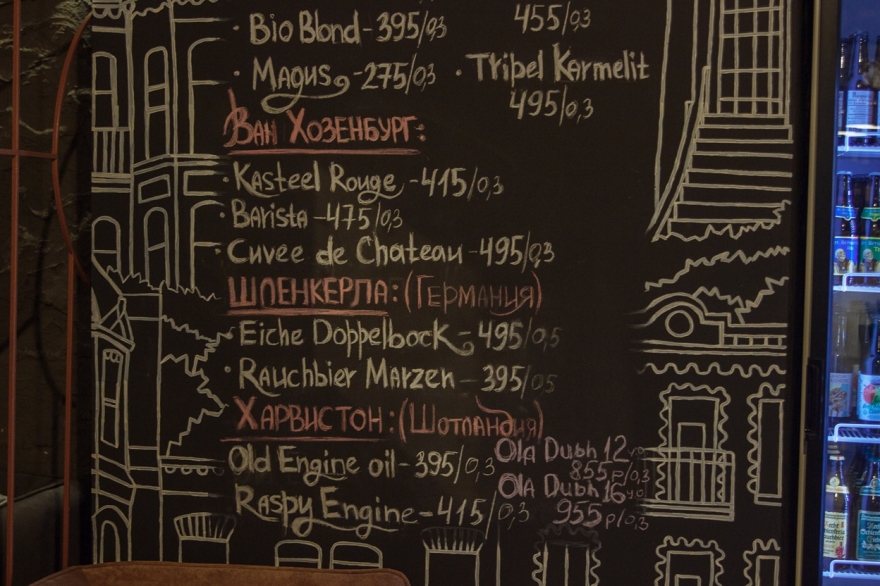 · Bio Blond - 395/0,3
455/0,3
· Magus - 275/0,3
· Tripel Karmelit
495/0,3
Ван Хозенбург:
· Kasteel Rouge - 415/0,3
· Barista - 475/0,3
· Cuvee de Chateau - 495/0,3
Шленкерла: (Германия)
· Eiche Doppelbock - 495/0,5
· Rauchbier Marzen - 395/0,5
Харвистон: (Шотландия)
Old Engine oil - 395/0,3
Raspy Engine - 415/0,3
Ola Dubh 12 y.o
855р/0,3
Ola Dubh 16 y.o
955р/0,3